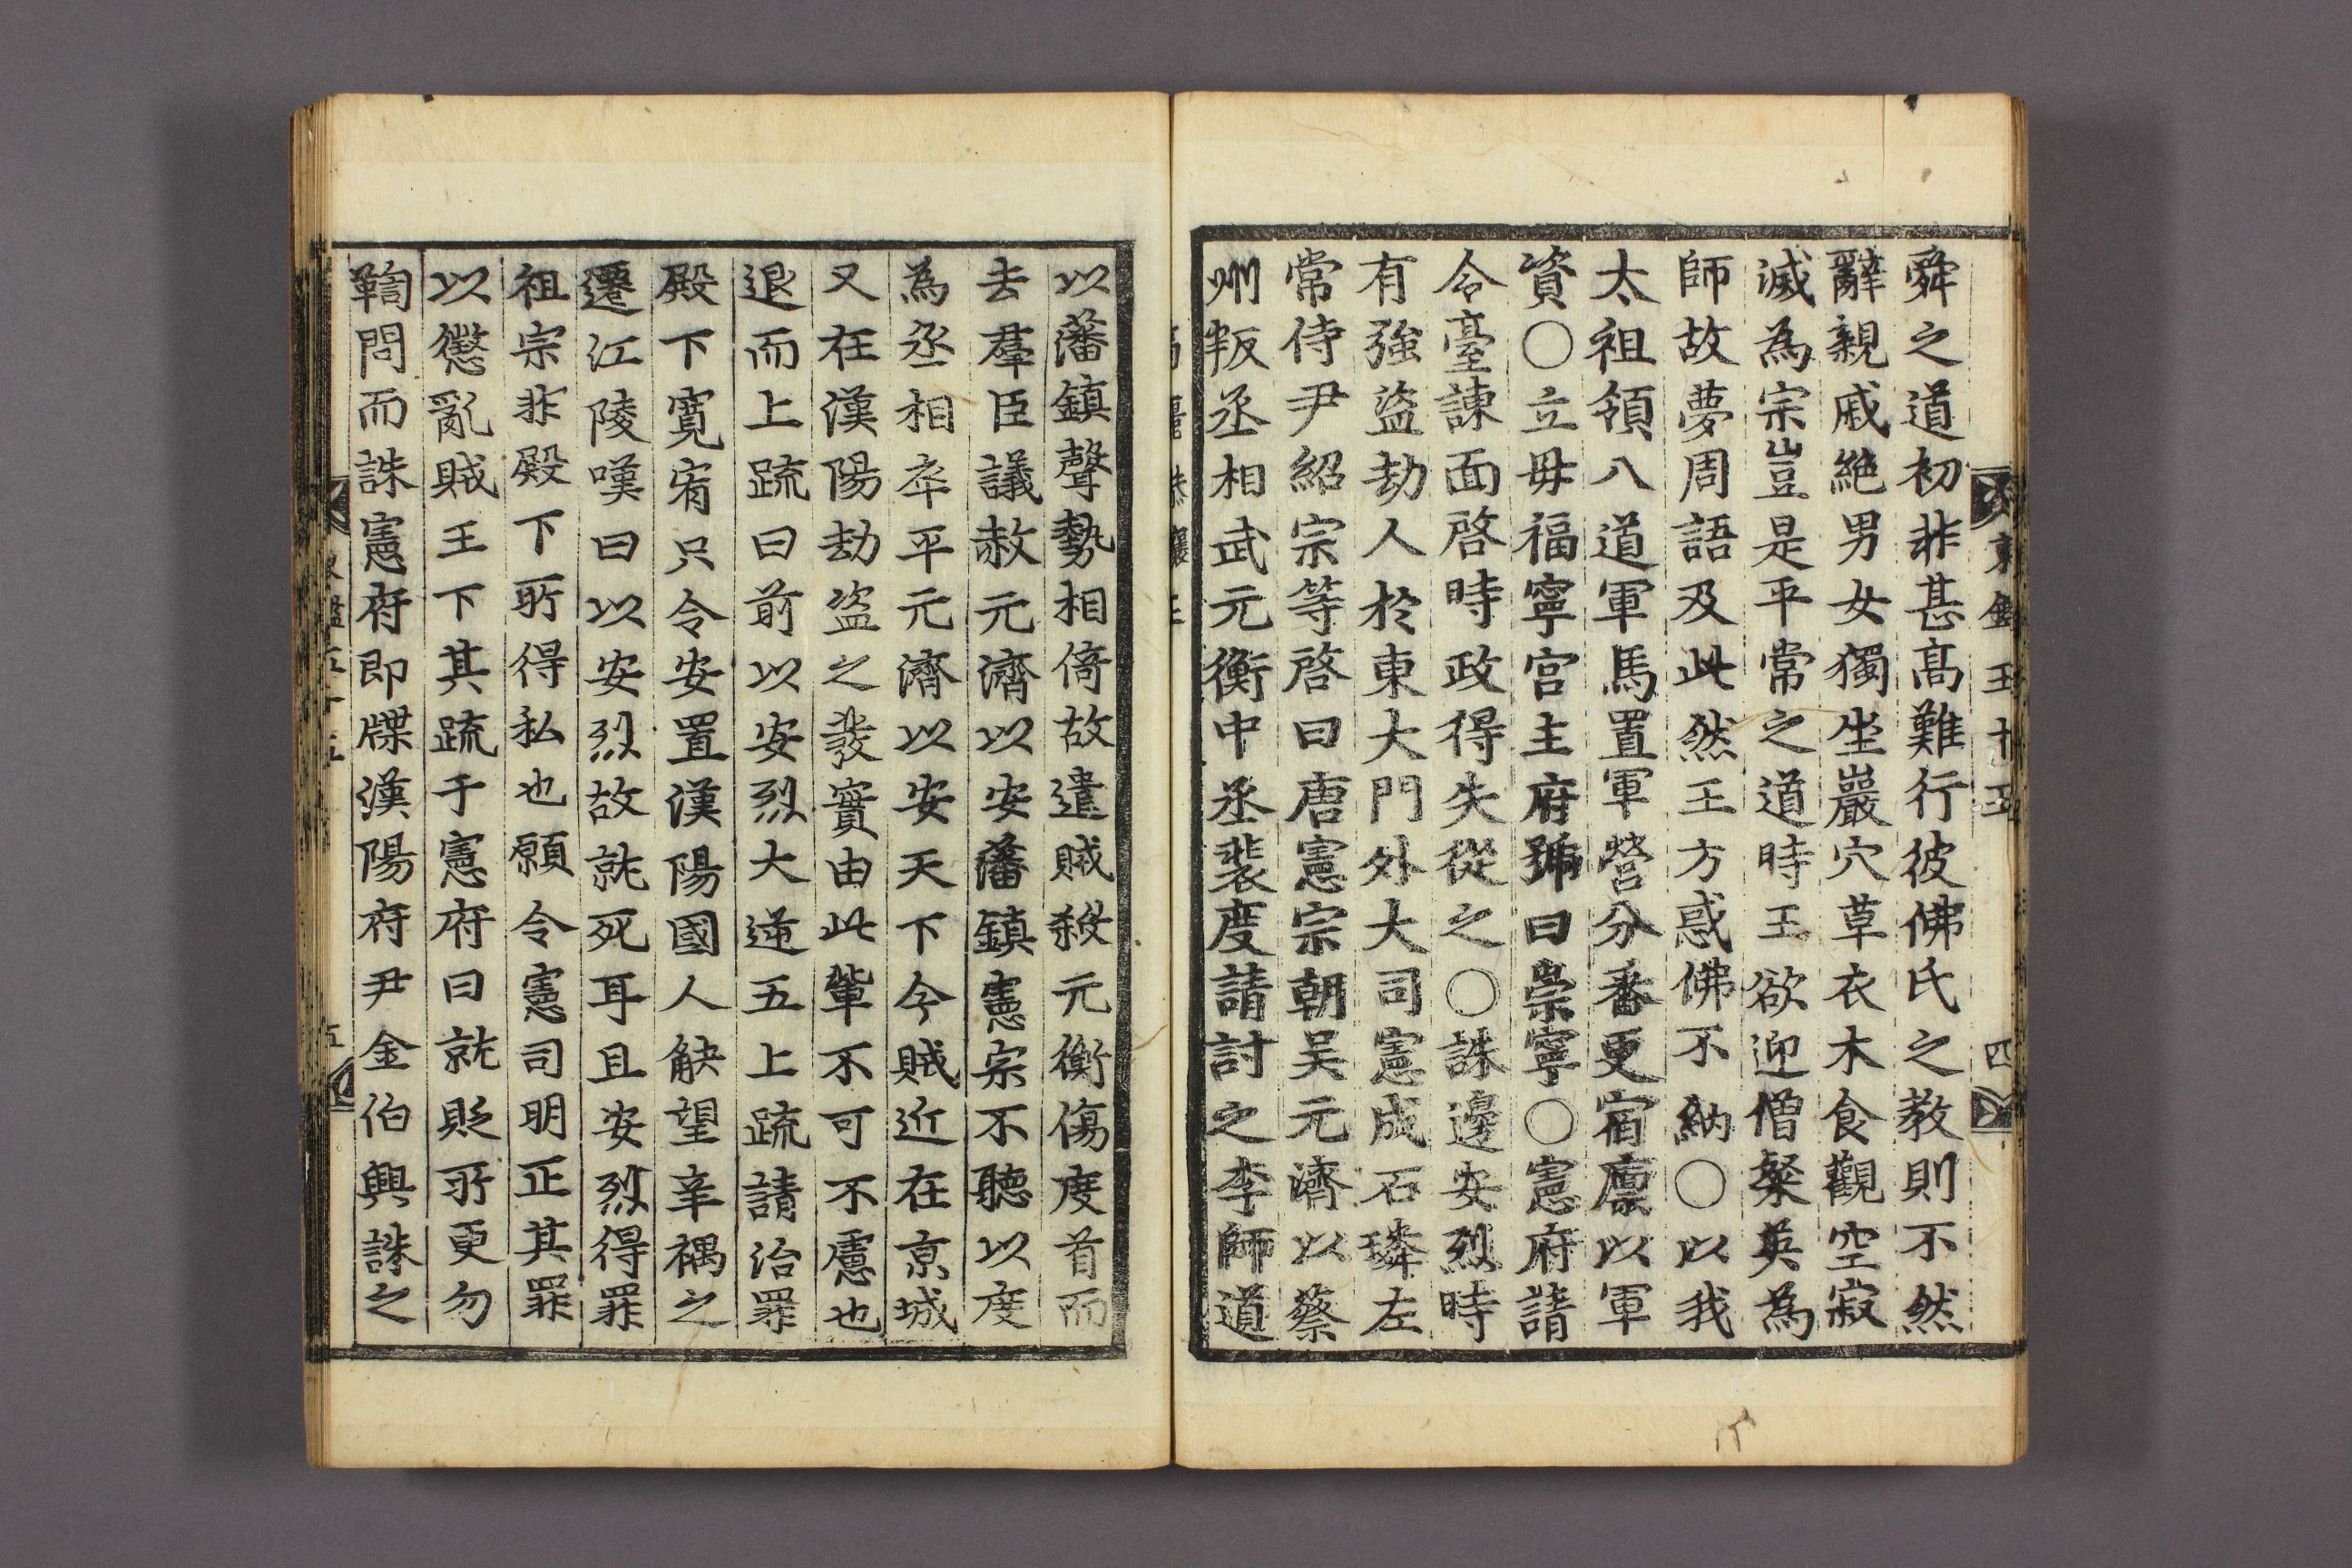 舜之道初非甚髙難行彼佛氏之教則不然
辭親戚絶男女獨坐巖穴草衣木食觀空寂
滅為宗豈是平常之道時王欲迎僧粲英為
師故夢周語及此然王方惑佛不納○以我
太祖領八道軍馬置軍營分番更宿廪以軍
資○立毋福寧宮主府號曰崇寧○憲府請
令臺諫面啓時政得失從之○誅邊安烈時
有強盜劫人於東大門外大司憲成石璘左
常侍尹紹宗等啓曰唐憲宗朝吴元濟以蔡
州叛丞相武元衡中丞裴度請討之李師道
以藩鎮聲勢相倚故遣賊殺元衡傷度首而
去羣臣議赦元濟以安藩鎮憲宗不聽以度
為丞相卒平元濟以安天下今賊近在京城
又在漢陽劫盜之發實由此輩不可不慮也
退而上疏曰前以安烈大逆五上疏請治罪
殿下寬宥只令安置漢陽國人觖望辛禑之
遷江陵嘆曰以安烈故就死耳且安烈得罪
祖宗非殿下所得私也願令憲司明正其罪
以懲亂賊王下其疏于憲府曰就貶所更勿
鞫問而誅憲府即牒漢陽府尹金伯興誅之